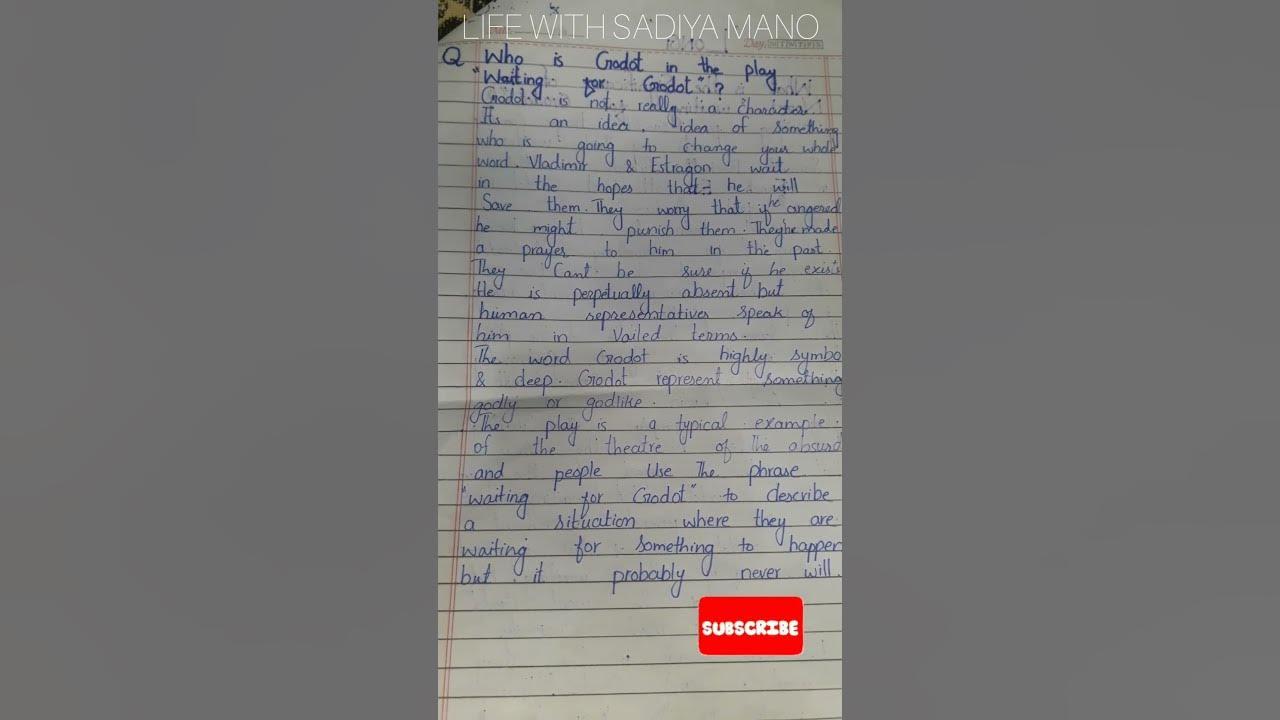 LIFE WITH SADIYA MANO
Day
Q Who is Godot in the play
"Waiting for Godot"?
Godot is not really a character.
Its an idea, idea of something
who is going to change your whole
word. Vladimir & Estragon wait
in the hopes that he will
Save them. They worry that if he angered
he might punish them. They made
a prayer to him in the past.
They Cant be sure if he exists
He is perpetually absent but
human representatives speak of
him in Vailed terms.
The word Godot is highly symbo
& deep. Godot represent something
godly or godlike.
The play is a typical example
of the theatre of The absurd
and people Use The phrase
"waiting for Godot" to describe
a situation where they are
waiting for something to happen
but it probably never will.
SUBSCRIBE